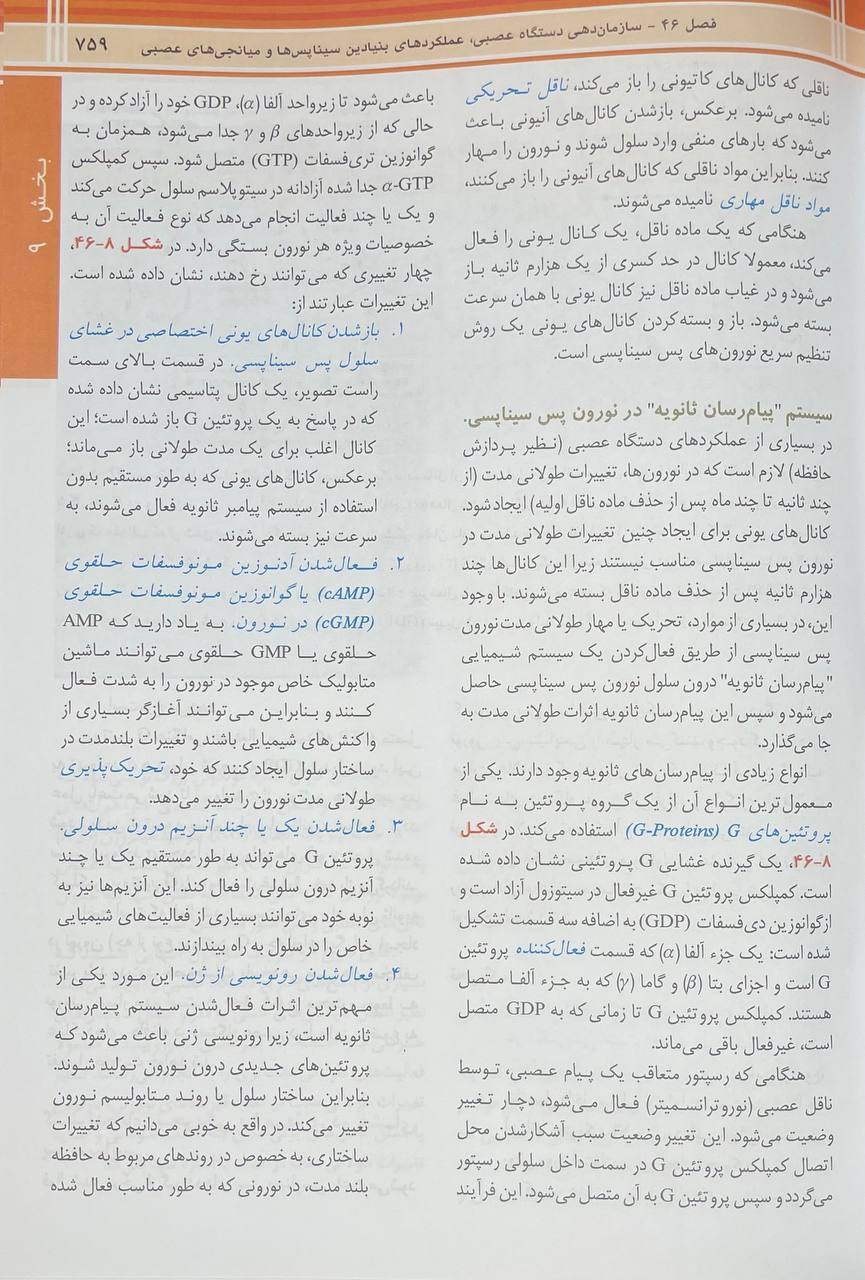 فصل ۴۶ - سازمان‌دهی دستگاه عصبی، عملکردهای بنیادین سیناپس‌ها و میانجی‌های عصبی
۷۵۹
بخش ۹
ناقلی که کانال‌های کاتیونی را باز می‌کند، ناقل تحریکی
نامیده می‌شود. برعکس، بازشدن کانال‌های آنیونی باعث
می‌شود که بارهای منفی وارد سلول شوند و نورون را مهار
کنند. بنابراین مواد ناقلی که کانال‌های آنیونی را باز می‌کنند،
مواد ناقل مهاری نامیده می‌شوند.
هنگامی که یک ماده ناقل، یک کانال یونی را فعال
می‌کند، معمولا کانال در حد کسری از یک هزارم ثانیه باز
می‌شود و در غیاب ماده ناقل نیز کانال یونی با همان سرعت
بسته می‌شود. باز و بسته کردن کانال‌های یونی یک روش
تنظیم سریع نورون‌های پس سیناپسی است.
سیستم "پیام‌رسان ثانویه" در نورون پس سیناپسی.
در بسیاری از عملکردهای دستگاه عصبی (نظیر پردازش
حافظه) لازم است که در نورون‌ها، تغییرات طولانی مدت (از
چند ثانیه تا چند ماه پس از حذف ماده ناقل اولیه) ایجاد شود.
کانال‌های یونی برای ایجاد چنین تغییرات طولانی مدت در
نورون پس سیناپسی مناسب نیستند زیرا این کانال‌ها چند
هزارم ثانیه پس از حذف ماده ناقل بسته می‌شوند. با وجود
این، در بسیاری از موارد، تحریک یا مهار طولانی مدت نورون
پس سیناپسی از طریق فعال‌کردن یک سیستم شیمیایی
"پیام‌رسان ثانویه" درون سلول نورون پس سیناپسی حاصل
می‌شود و سپس این پیام‌رسان ثانویه اثرات طولانی مدت به
جا می‌گذارد.
انواع زیادی از پیام‌رسان‌های ثانویه وجود دارند. یکی از
معمول‌ترین انواع آن از یک گروه پروتئین به نام
پروتئین‌های G (G-Proteins) استفاده می‌کند. در شکل
۴۶-۸، یک گیرنده غشایی G پروتئینی نشان داده شده
است. کمپلکس پروتئین G غیرفعال در سیتوزول آزاد است و
از گوانوزین دی‌فسفات (GDP) به اضافه سه قسمت تشکیل
شده است: یک جزء آلفا (α) که قسمت فعال‌کننده پروتئین
G است و اجزای بتا (β) و گاما (γ) که به جزء آلفا متصل
هستند. کمپلکس پروتئین G تا زمانی که به GDP متصل
است، غیرفعال باقی می‌ماند.
هنگامی که رسپتور متعاقب یک پیام عصبی، توسط
ناقل عصبی (نوروترانسمیتر) فعال می‌شود، دچار تغییر
وضعیت می‌شود. این تغییر وضعیت سبب آشکارشدن محل
اتصال کمپلکس پروتئین G در سمت داخل سلولی رسپتور
می‌گردد و سپس پروتئین G به آن متصل می‌شود. این فرآیند
باعث می‌شود تا زیرواحد آلفا (α)، GDP خود را آزاد کرده و در
حالی که از زیرواحدهای β و γ جدا می‌شود، همزمان به
گوانوزین تری‌فسفات (GTP) متصل شود. سپس کمپلکس
α-GTP جدا شده آزادانه در سیتوپلاسم سلول حرکت می‌کند
و یک یا چند فعالیت انجام می‌دهد که نوع فعالیت آن به
خصوصیات ویژه هر نورون بستگی دارد. در شکل ۸-۴۶،
چهار تغییری که می‌توانند رخ دهند، نشان داده شده است.
این تغییرات عبارتند از:
۱. بازشدن کانال‌های یونی اختصاصی در غشای
سلول پس سیناپسی. در قسمت بالای سمت
راست تصویر، یک کانال پتاسیمی نشان داده شده
که در پاسخ به یک پروتئین G باز شده است؛ این
کانال اغلب برای یک مدت طولانی باز می‌ماند؛
برعکس، کانال‌های یونی که به طور مستقیم بدون
استفاده از سیستم پیامبر ثانویه فعال می‌شوند، به
سرعت نیز بسته می‌شوند.
۲. فعال‌شدن آدنوزین مونوفسفات حلقوی
(cAMP) یا گوانوزین مونوفسفات حلقوی
(cGMP) در نورون. به یاد دارید که AMP
حلقوی یا GMP حلقوی می‌توانند ماشین
متابولیک خاص موجود در نورون را به شدت فعال
کنند و بنابراین می‌توانند آغازگر بسیاری از
واکنش‌های شیمیایی باشند و تغییرات بلندمدت در
ساختار سلول ایجاد کنند که خود، تحریک‌پذیری
طولانی مدت نورون را تغییر می‌دهد.
۳. فعال‌شدن یک یا چند آنزیم درون سلولی.
پروتئین G می‌تواند به طور مستقیم یک یا چند
آنزیم درون سلولی را فعال کند. این آنزیم‌ها نیز به
نوبه خود می‌توانند بسیاری از فعالیت‌های شیمیایی
خاص را در سلول به راه بیندازند.
۴. فعال‌شدن رونویسی از ژن. این مورد یکی از
مهم‌ترین اثرات فعال‌شدن سیستم پیام‌رسان
ثانویه است، زیرا رونویسی ژنی باعث می‌شود که
پروتئین‌های جدیدی درون نورون تولید شوند.
بنابراین ساختار سلول یا روند متابولیسم نورون
تغییر می‌کند. در واقع به خوبی می‌دانیم که تغییرات
ساختاری، به خصوص در روندهای مربوط به حافظه
بلند مدت، در نورونی که به طور مناسب فعال شده